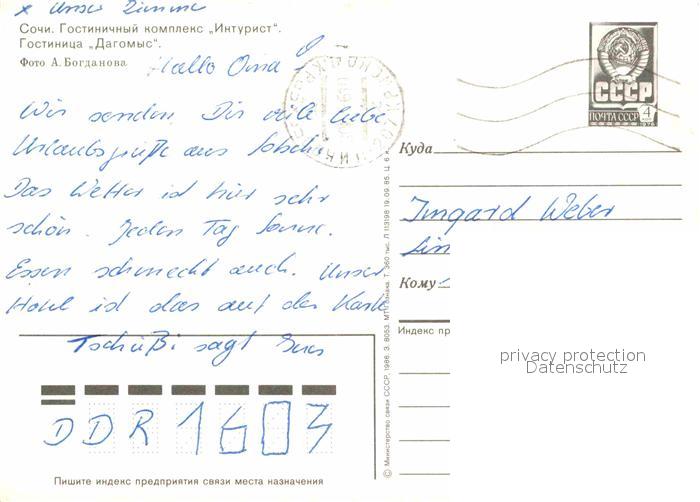 x Unser Zimmer
Сочи. Гостиничный комплекс „Интурист“.
Гостиница „Дагомыс“.
Фото А. Богданова
Hallo Oma!
Wir senden Dir viele liebe
Urlaubsgrüße aus Sotschi.
Das Wetter ist hier sehr
schön. Jeden Tag Sonne.
Essen schmeckt auch. Unser
Hotel ist das auf der Karte
Tschüßi sagt
DDR 1603
Пишите индекс предприятия связи места назначения
© Министерство связи СССР, 1986. З. 8053. МПФ Гознака. Т. 360 тыс. Л 113198 19.09.85. Ц. 6 к.
СССР
ПОЧТА СССР 4
1976
Куда
Irmgard Weber
Lin
Кому
Индекс пр
privacy protection
Datenschutz